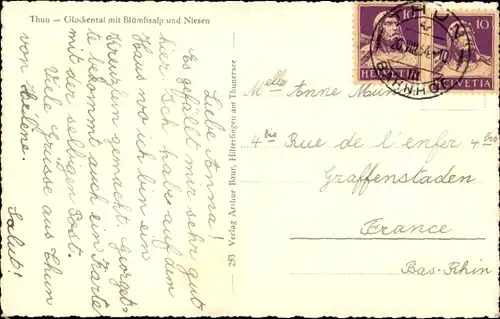 Thun - Glockental mit Blümlisalp und Niesen
Liebe Anna!
es gefällt mir sehr gut
hier. Ich habe auf dem
Haus wo ich bin ein
Kreuzlein gemacht. Georget-
te bekommt auch ein Karte
mit der selbigen Post.
Viele Grüsse aus Thun
von Hélène.
Salut!
253 Verlag Arthur Baur, Hilterfingen am Thunersee
10
10
HELVETIA
HELVETIA
THUN
Melle Anne
4 bis Rue de l'enfer 4 bis
Graffenstaden
France
Bas-Rhin